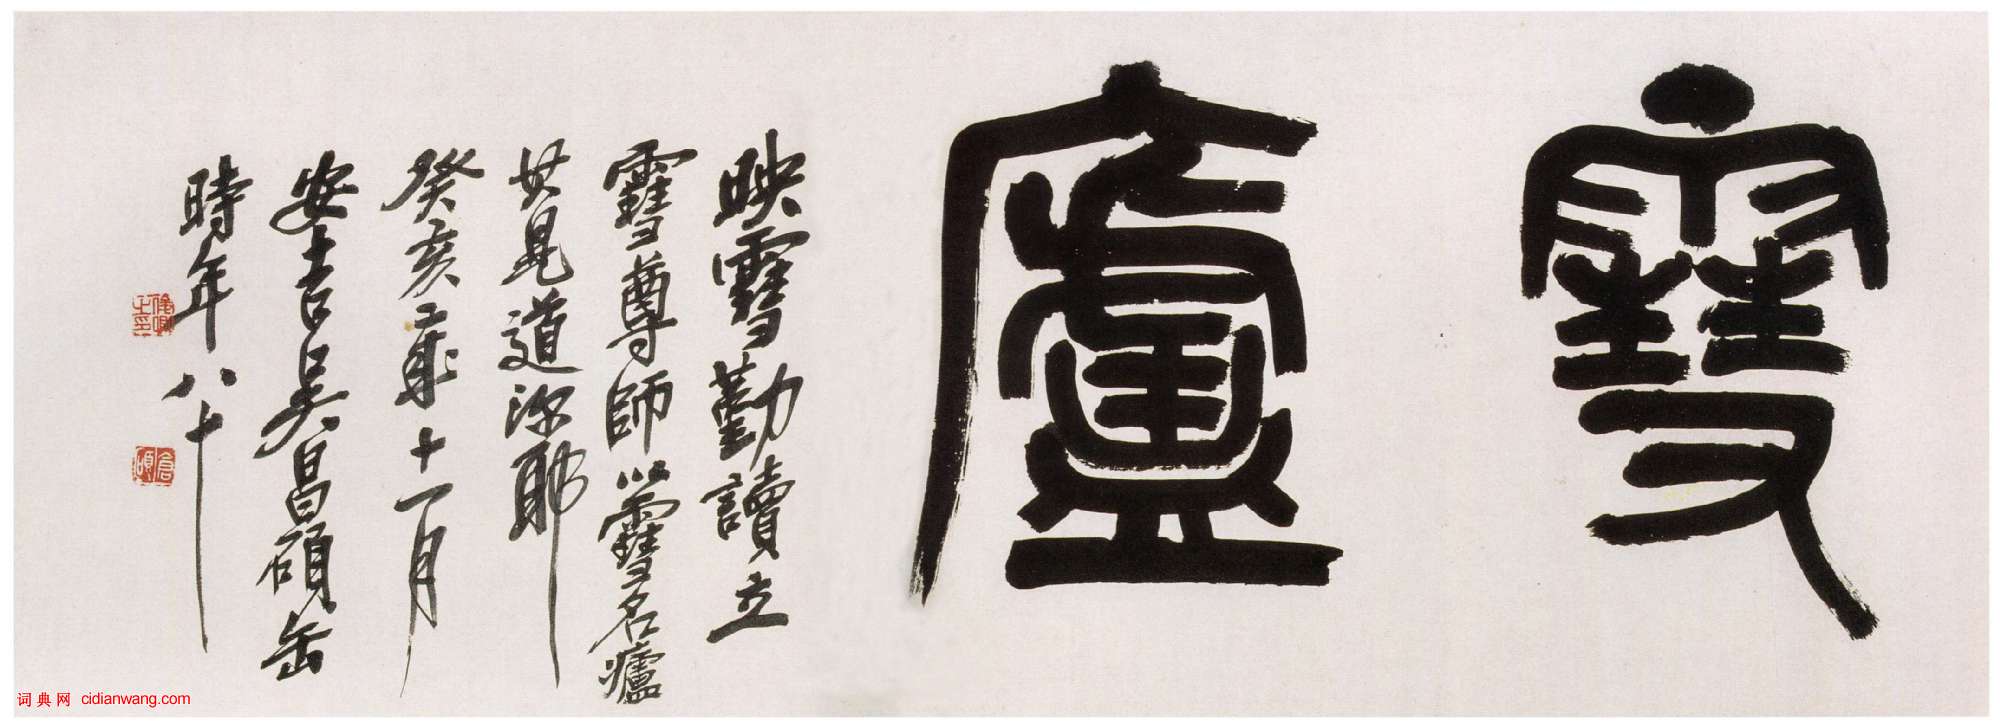 雪廬
映雪勤讀立
雪尊師以雪名廬
其見道深耶
癸亥歲十一月
安吉吳昌碩缶
時年八十
俊卿之印
倉碩
词典网 cidianwang.com